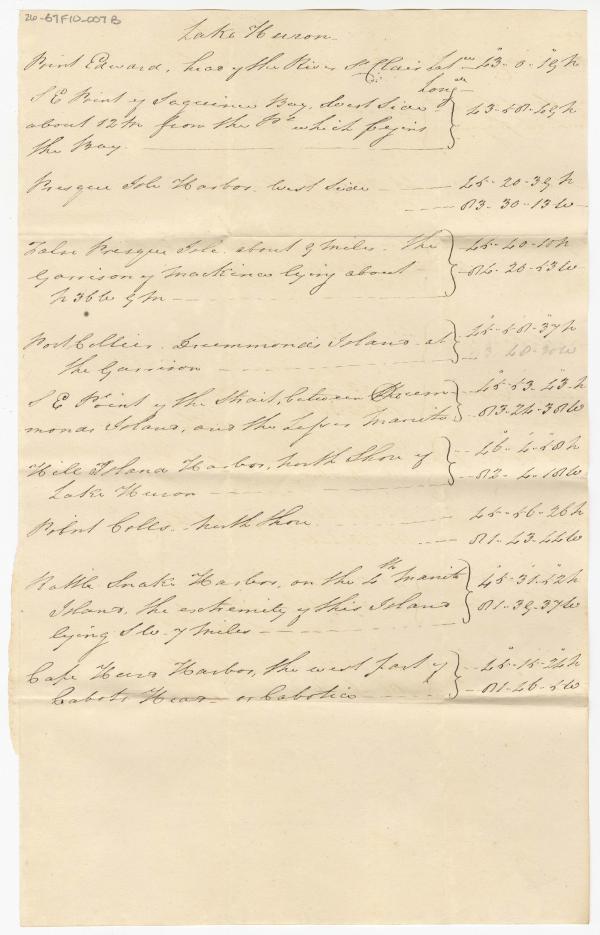 26-67F10-007B
Lake Huron
Point Edward, head of the River St Clair Latde 43-0-19 N
Longde
S E Point of Saguinea Bay, West Side 43-58-49 N
about 12 M from the Pt which begins
the Bay.
Presque Isle Harbor. West Side 45-20-39 N
83-30-13 W
False Presque Isle about 9 Miles. The 45-40-10 N
Garrison of Mackinac lying about 84-20-53 W
N 36 W 9 M
Port Collier. Drummonds Island at 45-58-37 N
the Garrison 3 48-30 W
S E Point of the Strait, between Drum 45-53-43 N
monds Island, and the Lesser Manito 83-24-38 W
Hill Island Harbor, North Shore of 46-4-58 N
Lake Huron 82-4-18 W
Point Colls. North Shore 45-56-26 N
81-43-44 W
Rattle Snake Harbor, on the 4th Manito 45-31-52 N
Island, the extremity of this Island 81-39-37 W
lying S W. 7 miles
Cape Hurd Harbor, the west part of 45-15-24 N
Cabots Head or Cabotia 81-46-5 W